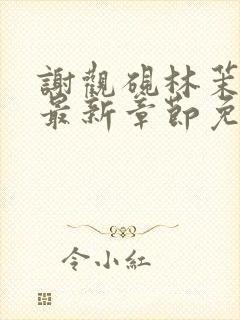 謝觀硯林茉
最新章節免
令小紅